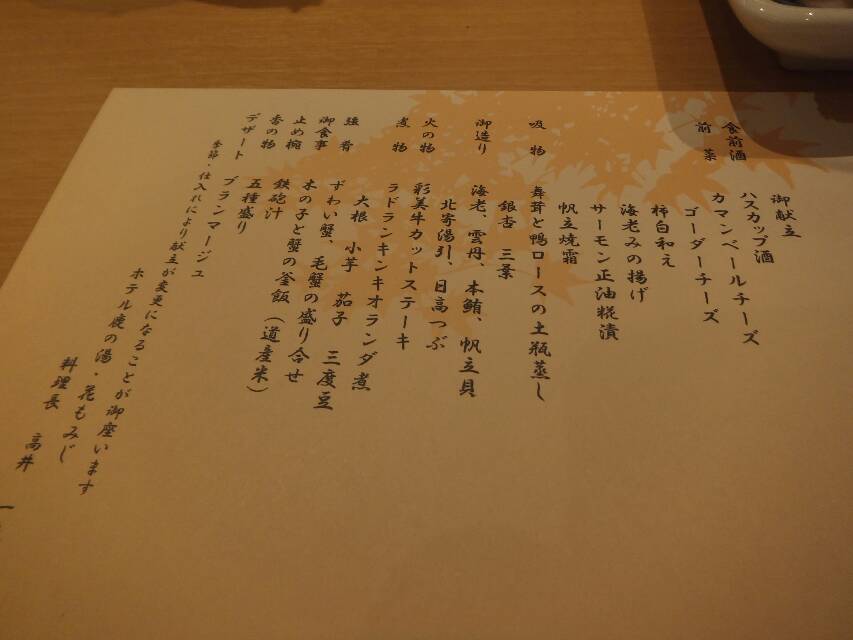 御献立
食前酒 ハスカップ酒
前菜 カマンベールチーズ
ゴーダーチーズ
柿白和え
海老みの揚げ
サーモン正油糀漬
帆立焼霜
吸物 舞茸と鴨ロースの土瓶蒸し
銀杏 三葉
御造り 海老、雲丹、本鮪、帆立貝
北寄湯引、日高つぶ
火の物 彩美牛カットステーキ
煮物 ラドランキンキオランダ煮
大根 小芋 茄子 三度豆
強肴 ずわい蟹、毛蟹の盛り合せ
御食事 木の子と蟹の釜飯（道産米）
止め椀 鉄砲汁
香の物 五種盛り
デザート ブランマージュ
季節・仕入れにより献立が変更になることが御座います
ホテル鹿の湯・花もみじ
料理長 高井